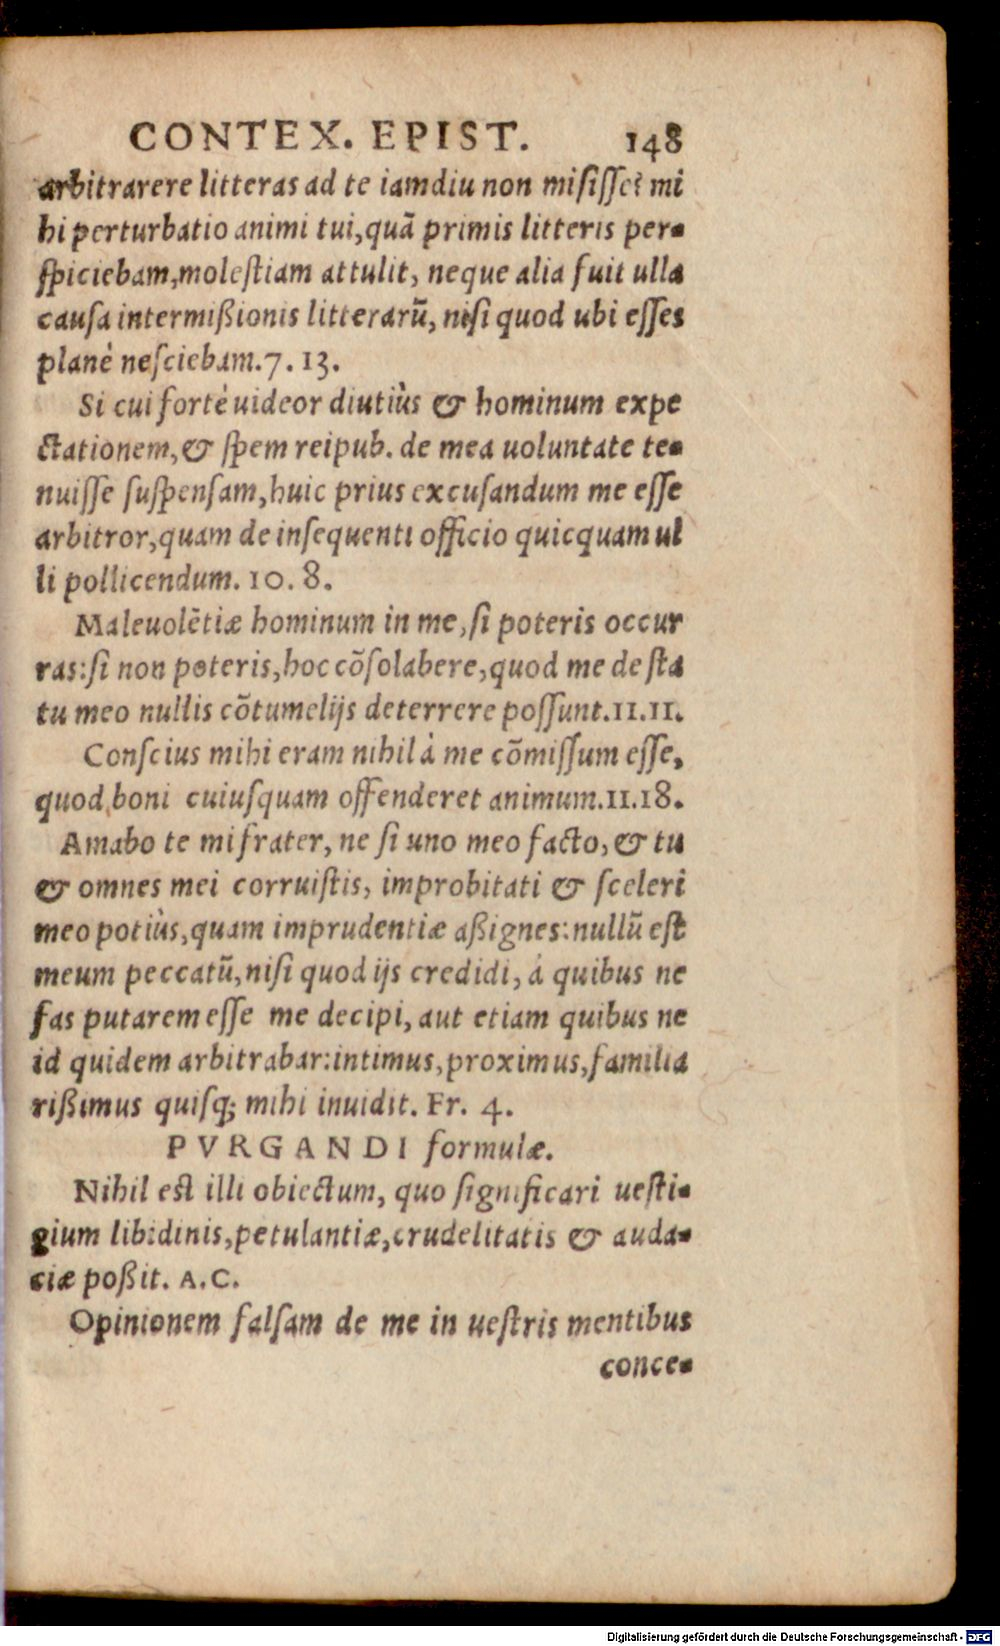 CONTEX. EPIST. 148
arbitrarere litteras ad te iamdiu non misisset mi
hi perturbatio animi tui, quã primis litteris per-
spiciebam, molestiam attulit, neque alia fuit ulla
causa intermißionis litterarũ, nisi quod ubi esses
planè nesciebam. 7. 13.
Si cui fortè uideor diutiùs & hominum expe
ctationem, & spem reipub. de mea uoluntate te-
nuisse suspensam, huic prius excusandum me esse
arbitror, quam de insequenti officio quicquam ul
li pollicendum. 10. 8.
Maleuolẽtiæ hominum in me, si poteris occur
ras: si non poteris, hoc cõsolabere, quod me de sta
tu meo nullis cõtumelijs deterrere possunt. 11. 11.
Conscius mihi eram nihil à me cõmissum esse,
quod boni cuiusquam offenderet animum. 11. 18.
Amabo te mi frater, ne si uno meo facto, & tu
& omnes mei corruistis, improbitati & sceleri
meo potiùs, quam imprudentiæ aßignes: nullũ est
meum peccatũ, nisi quod ijs credidi, à quibus ne
fas putarem esse me decipi, aut etiam quibus ne
id quidem arbitrabar: intimus, proximus, familia
rißimus quisq; mihi inuidit. Fr. 4.
PVRGANDI formulæ.
Nihil est illi obiectum, quo significari uesti-
gium libidinis, petulantiæ, crudelitatis & auda-
ciæ poßit. A.C.
Opinionem falsam de me in uestris mentibus
conce-
Digitalisierung gefördert durch die Deutsche Forschungsgemeinschaft - DFG